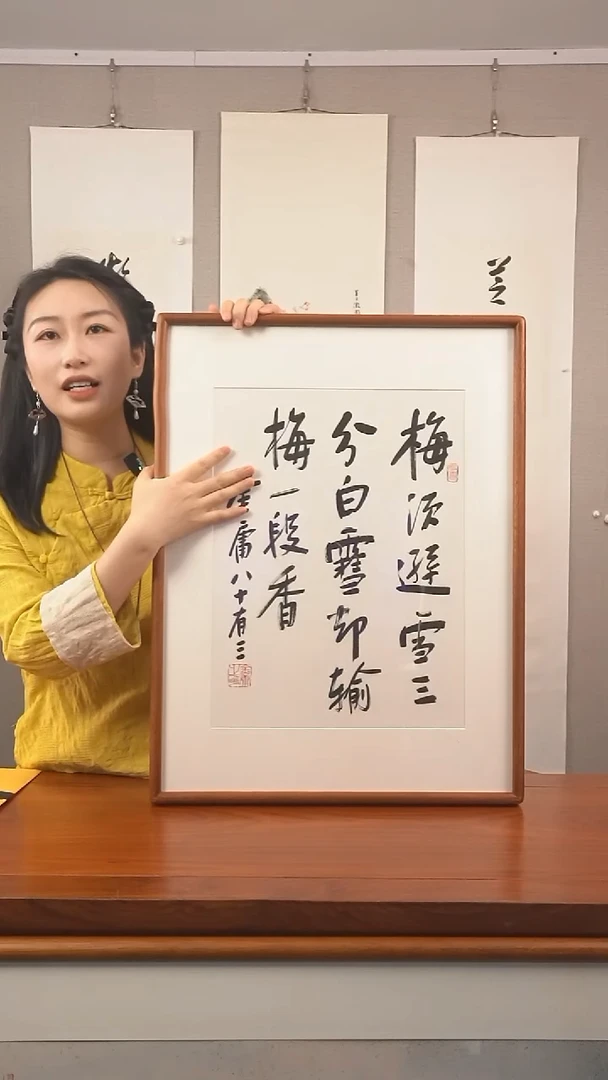 梅须遜雪三
分白雪却輸
梅一段香
庸八十有三